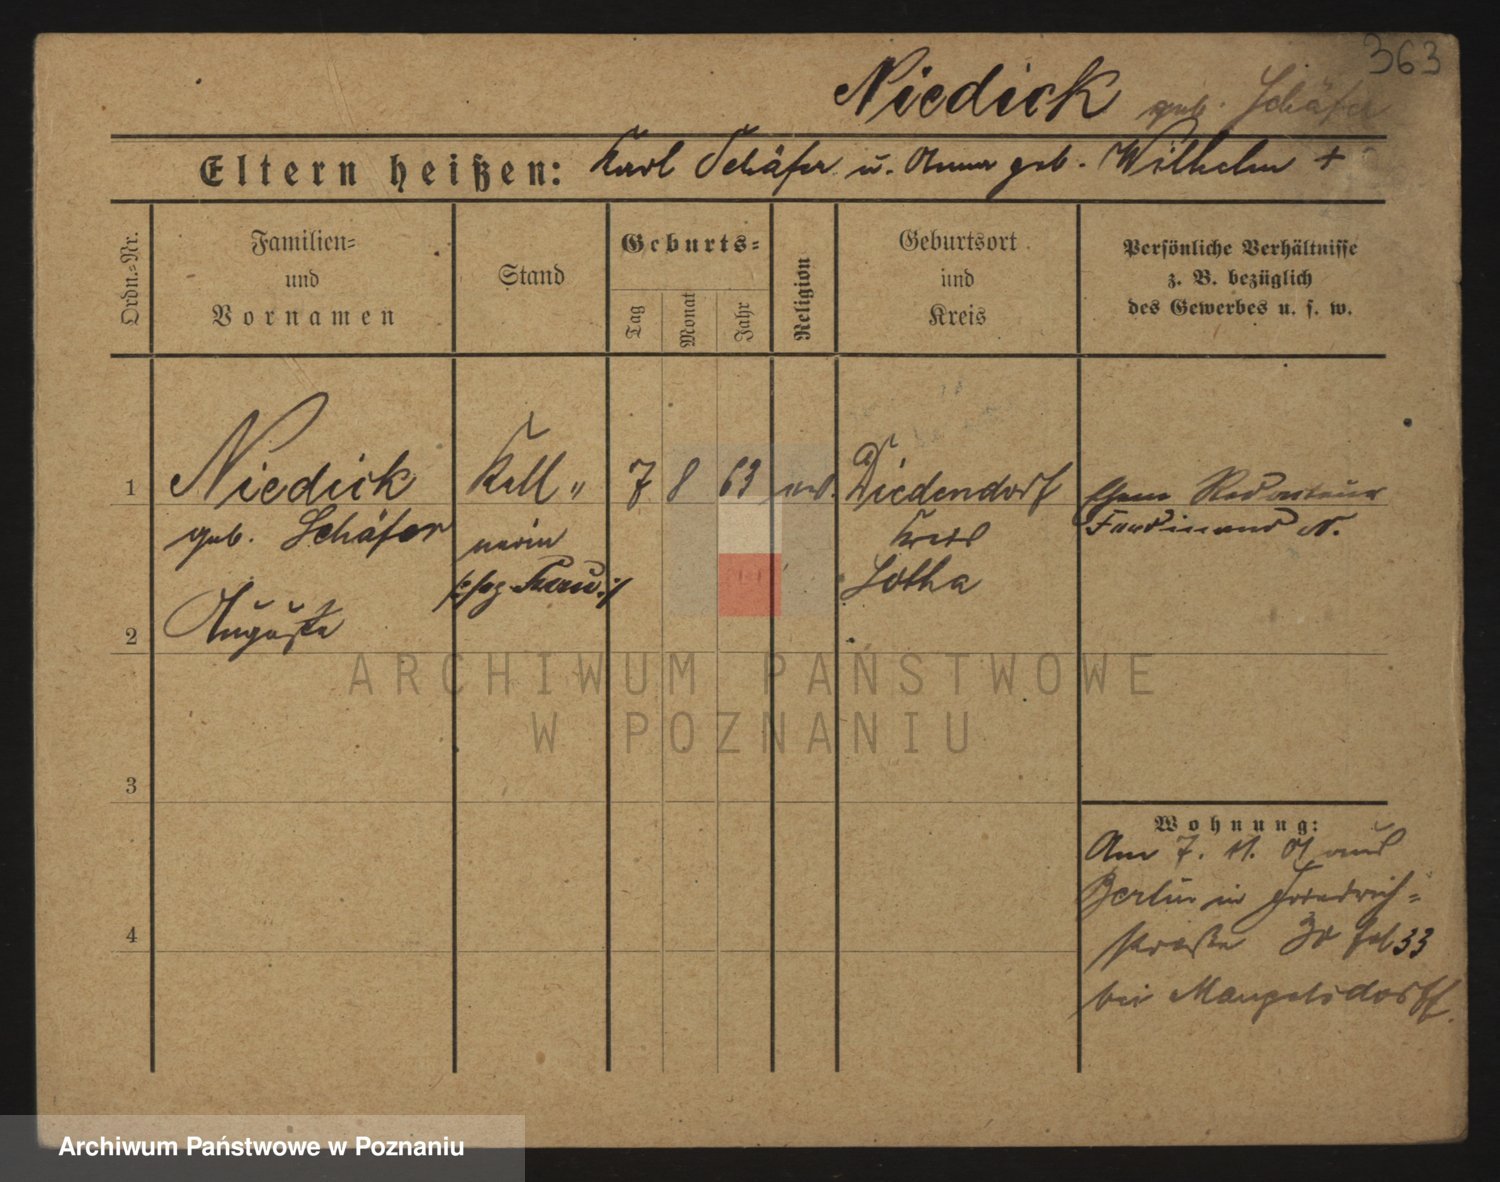 363
Niedick geb. Schäfer
Eltern heißen: Karl Schäfer u. Anna geb. Wilhelm +
Ordn.=Nr.
Familien=
und
Vornamen
Stand
Geburts=
Tag
Monat
Jahr
Religion
Geburtsort
und
Kreis
Persönliche Verhältnisse
z. B. bezüglich
des Gewerbes u. s. w.
1
Niedick
geb. Schäfer
Auguste
Kell"
nerin
Frau
7 8 63
Diedendorf
Kreis
Gotha
Redakteur
Ferdinand N.
2
3
4
Wohnung:
Am 7. 11. 01 aus
Berlin in Friedrich=
straße 33
bei Mangelsdorff.
ARCHIWUM PAŃSTWOWE
W POZNANIU
Archiwum Państwowe w Poznaniu